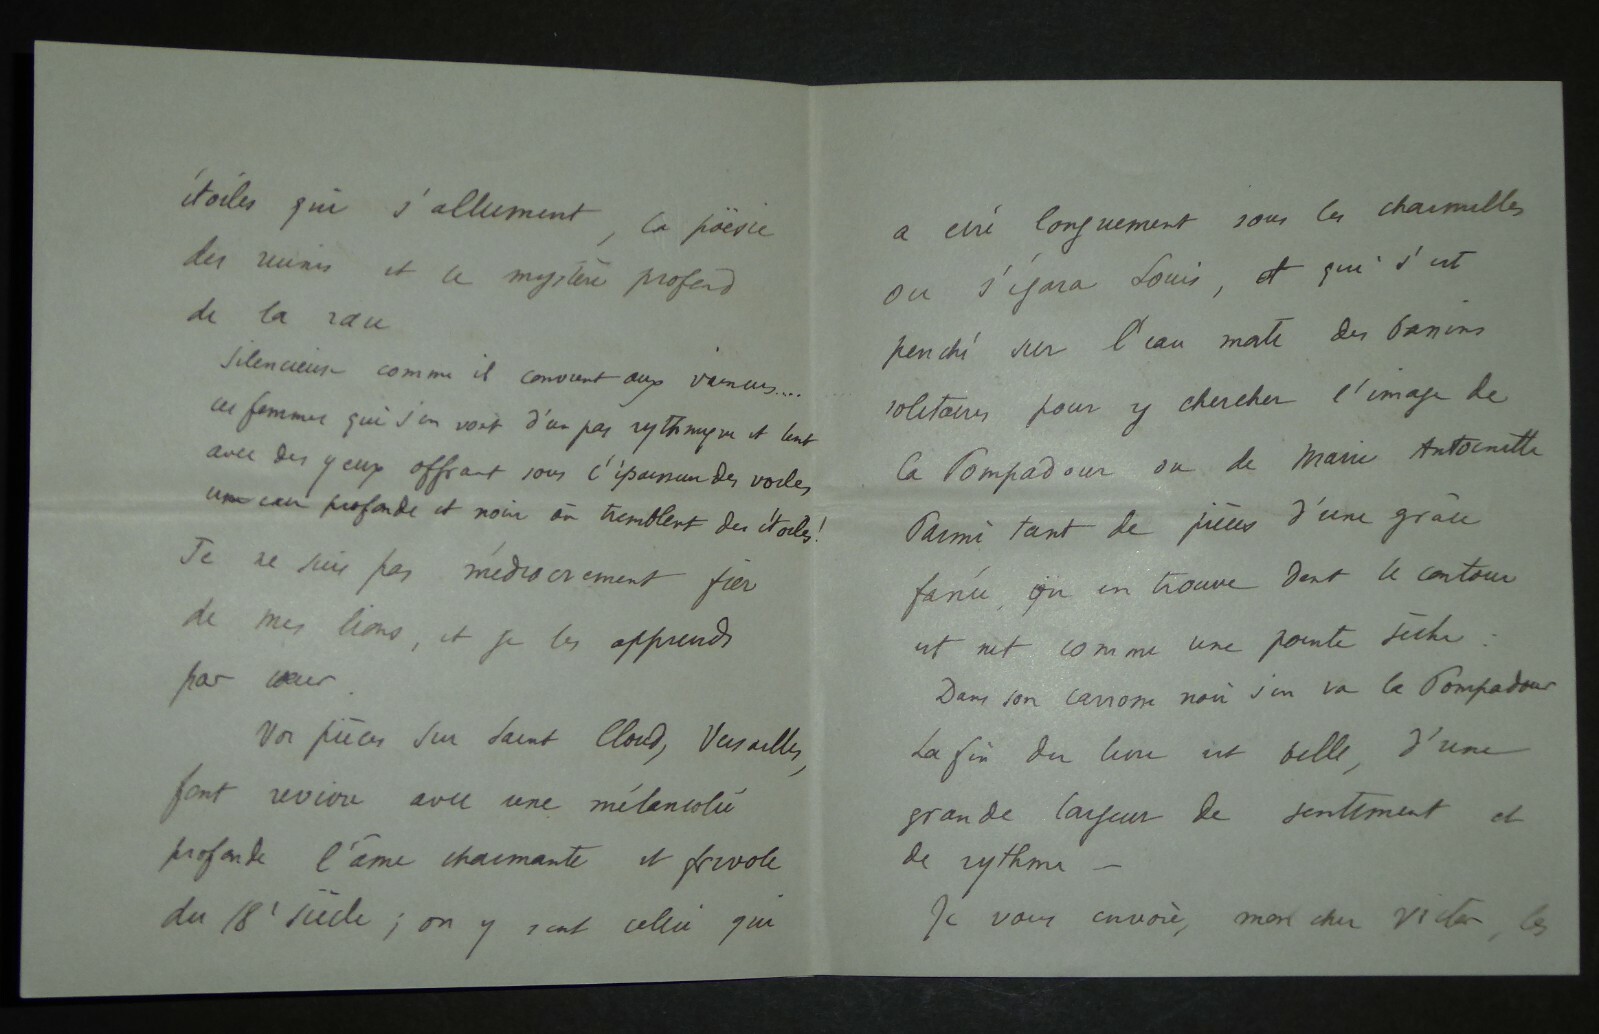 étoiles qui s'allument, la poësie
des ruines et le mystère profond
de la race
Silencieuse comme il convient aux vaincus....
ces femmes qui s'en vont d'un pas rythmique et lent
avec des yeux offrant sous l'épaisseur des voiles
une eau profonde et noire où tremblent des étoiles!
Je ne suis pas médiocrement fier
de mes lions, et je les apprends
par cœur.
Vos pièces sur Saint Cloud, Versailles,
font revivre avec une mélancolie
profonde l'âme charmante et frivole
du 18e siècle ; on y sent celui qui
a erré longuement sous les charmilles
où s'égara Louis, et qui s'est
penché sur l'eau morte des bassins
solitaires pour y chercher l'image de
la Pompadour ou de Marie Antoinette
Parmi tant de pièces d'une grâce
fanée, on en trouve dont le contour
est net comme une pointe sèche :
Dans son carrosse noir s'en va la Pompadour
La fin du livre est belle, d'une
grande largeur de sentiment et
de rythme —
Je vous envoie, mon cher Victor, les